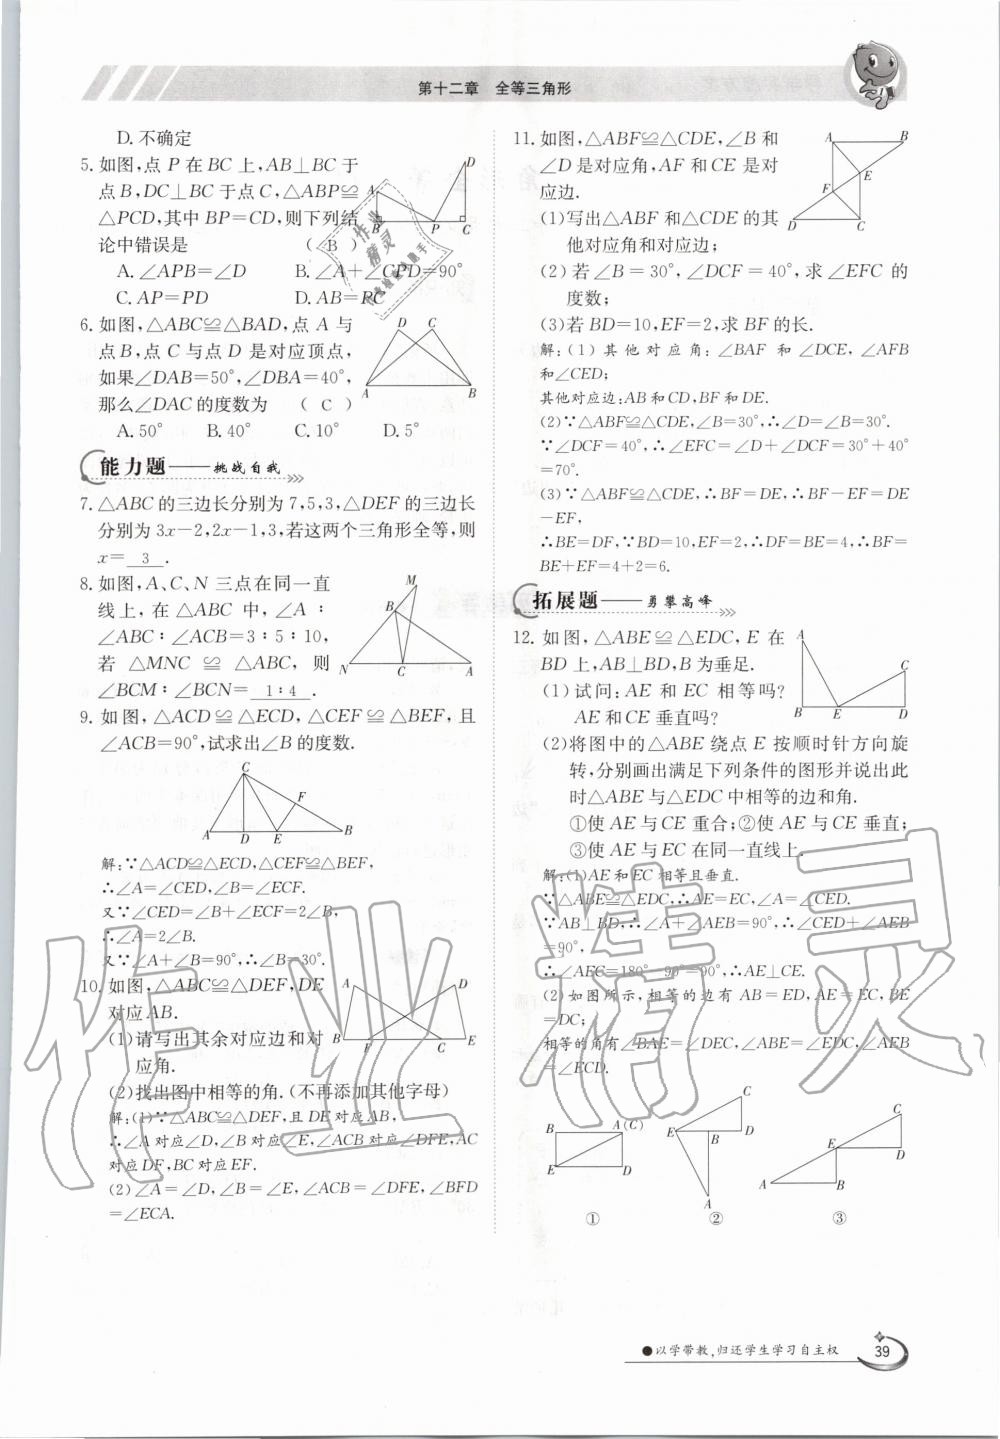 第十二章 全等三角形
D. 不确定
5. 如图,点 P 在 BC 上,AB⊥BC 于
点 B,DC⊥BC 于点 C,△ABP≌
△PCD,其中 BP=CD,则下列结
论中错误是 ( B )
A. ∠APB=∠D B. ∠A+∠CPD=90°
C. AP=PD D. AB=PC
A
D
B
P
C
6. 如图,△ABC≌△BAD,点 A 与
点 B,点 C 与点 D 是对应顶点,
如果∠DAB=50°,∠DBA=40°,
那么∠DAC 的度数为 ( C )
A. 50° B. 40° C. 10° D. 5°
D C
A B
能力题——挑战自我
7. △ABC 的三边长分别为 7,5,3,△DEF 的三边长
分别为 3x-2,2x-1,3,若这两个三角形全等,则
x= 3 .
8. 如图,A、C、N 三点在同一直
线上,在 △ABC 中,∠A∶
∠ABC∶∠ACB=3∶5∶10,
若 △MNC ≌ △ABC, 则
∠BCM∶∠BCN= 1∶4 .
M
B
N C A
9. 如图,△ACD≌△ECD,△CEF≌△BEF,且
∠ACB=90°,试求出∠B 的度数.
C
F
A D E B
解:∵△ACD≌△ECD,△CEF≌△BEF,
∴∠A=∠CED,∠B=∠ECF.
又∵∠CED=∠B+∠ECF=2∠B,
∴∠A=2∠B.
又∵∠A+∠B=90°,∴∠B=30°.
10. 如图,△ABC≌△DEF,DE
对应 AB.
(1)请写出其余对应边和对
应角.
(2)找出图中相等的角.(不再添加其他字母)
A D
B F C E
解:(1)∵△ABC≌△DEF,且 DE 对应 AB,
∴∠A 对应∠D,∠B 对应∠E,∠ACB 对应∠DFE,AC
对应 DF,BC 对应 EF.
(2)∠A=∠D,∠B=∠E,∠ACB=∠DFE,∠BFD
=∠ECA.
11. 如图,△ABF≌△CDE,∠B 和
∠D 是对应角,AF 和 CE 是对
应边.
(1)写出△ABF 和△CDE 的其
他对应角和对应边;
(2)若∠B=30°,∠DCF=40°,求∠EFC 的
度数;
(3)若 BD=10,EF=2,求 BF 的长.
A B
E
F
D C
解:(1)其他对应角:∠BAF 和∠DCE,∠AFB
和∠CED;
其他对应边:AB 和 CD,BF 和 DE.
(2)∵△ABF≌△CDE,∠B=30°,∴∠D=∠B=30°.
∵∠DCF=40°,∴∠EFC=∠D+∠DCF=30°+40°
=70°.
(3)∵△ABF≌△CDE,∴BF=DE,∴BF-EF=DE
-EF,
∴BE=DF,∵BD=10,EF=2,∴DF=BE=4,∴BF=
BE+EF=4+2=6.
拓展题——勇攀高峰
12. 如图,△ABE≌△EDC,E 在
BD 上,AB⊥BD,B 为垂足.
(1)试问:AE 和 EC 相等吗?
AE 和 CE 垂直吗?
A
C
B E D
(2)将图中的△ABE 绕点 E 按顺时针方向旋
转,分别画出满足下列条件的图形并说出此
时△ABE 与△EDC 中相等的边和角.
①使 AE 与 CE 重合;②使 AE 与 CE 垂直;
③使 AE 与 EC 在同一直线上.
解:(1)AE 和 EC 相等且垂直.
∵△ABE≌△EDC,∴AE=EC,∠A=∠CED.
∵AB⊥BD,∴∠A+∠AEB=90°,∴∠CED+∠AEB
=90°,
∴∠AEC=180°-90°=90°,∴AE⊥CE.
(2)如图所示,相等的边有 AB=ED,AE=EC,BE
=DC;
相等的角有∠BAE=∠DEC,∠ABE=∠EDC,∠AEB
=∠ECD.
B A(C)
E D
①
C
E B D
A
②
C
E D
A B
③
作业精灵
●以学带教,归还学生学习自主权
39